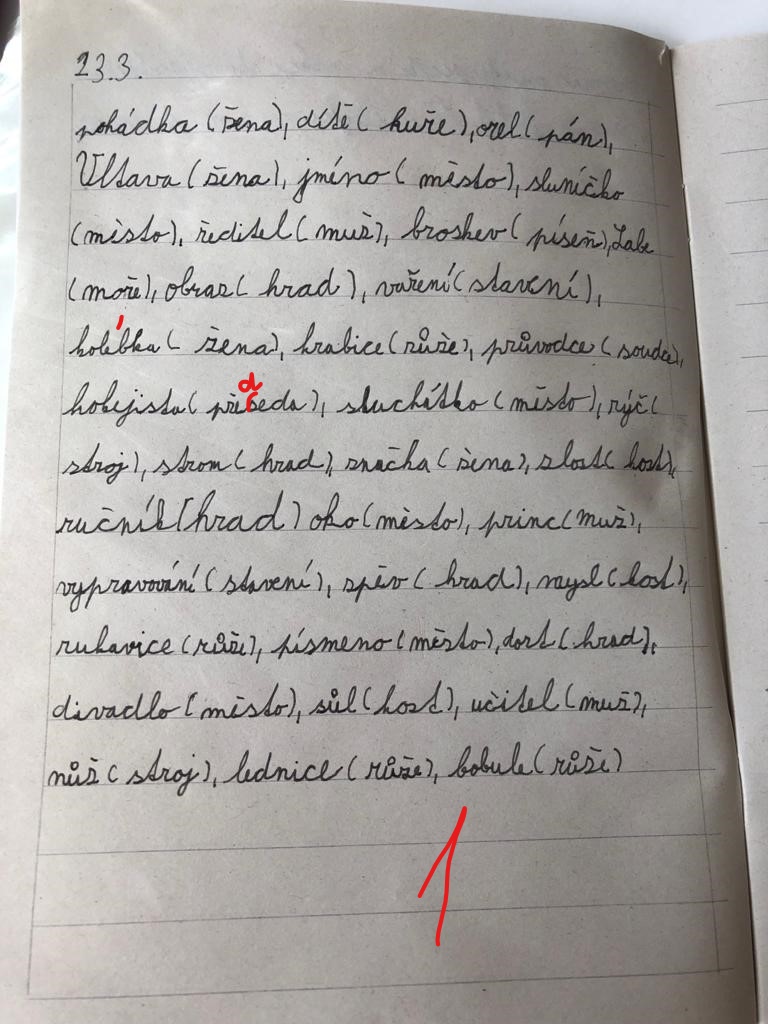 23.3.
pohádka (žena), dítě ( kuře), orel ( pán),
Vltava (žena), jméno ( město), sluníčko
(město), ředitel ( muž), broskev ( píseň), Labe
(moře), obraz ( hrad ), vaření (stavení),
kolébka ( žena), krabice (růže), průvodce ( soudce),
hokejista ( předseda), sluchátko (město), rýč (
stroj), strom ( hrad), značka ( žena), zlost ( kost),
ručník (hrad) oko (město), princ (muž),
vypravování ( stavení), zpěv ( hrad), mysl ( kost),
rukavice ( růže), písmeno (město), dort ( hrad),
divadlo ( město), sůl ( kost), učitel (muž),
nůž ( stroj), lednice ( růže), bobule ( růže)
1